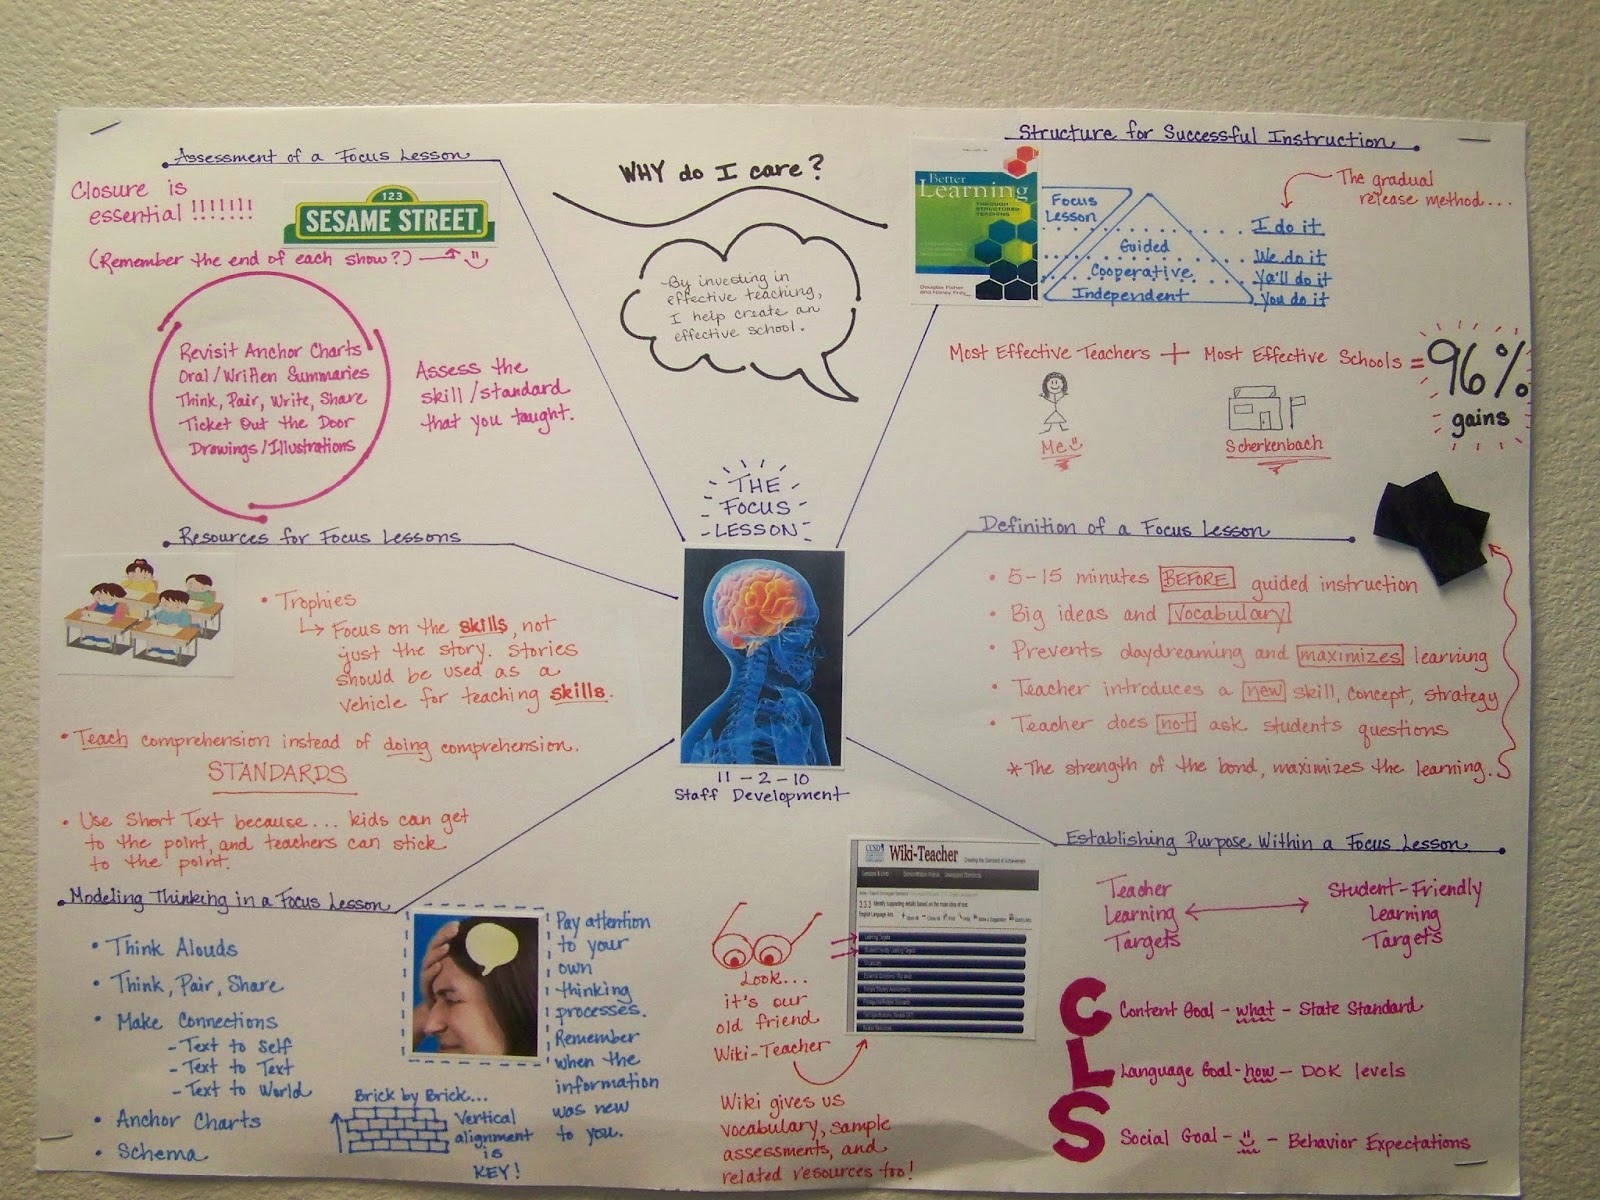 Assessment of a Focus Lesson
Closure is
essential !!!!!!!
123
SESAME STREET.
(Remember the end of each show?)
Revisit Anchor Charts
Oral/Written Summaries
Think, Pair, Write, Share
Ticket Out the Door
Drawings/Illustrations
Assess the
skill/standard
that you taught.
WHY do I care?
By investing in
effective teaching,
I help create an
effective school.
Structure for Successful Instruction
Better
Learning
THROUGH
STRUCTURED
TEACHING
Douglas Fisher
and Nancy Frey
Focus
Lesson
Guided
Cooperative
Independent
The gradual
release method...
I do it
We do it
Ya'll do it
You do it
Most Effective Teachers + Most Effective Schools = 96%
gains
Me
Scherkenbach
THE
FOCUS
LESSON
11-2-10
Staff Development
Resources for Focus Lessons
• Trophies
Focus on the skills, not
just the story. Stories
should be used as a
vehicle for teaching skills.
• Teach comprehension instead of doing comprehension.
STANDARDS
• Use Short Text because... kids can get
to the point, and teachers can stick
to the point.
Definition of a Focus Lesson
• 5-15 minutes BEFORE guided instruction
• Big ideas and vocabulary
• Prevents daydreaming and maximizes learning
• Teacher introduces a new skill, concept, strategy
• Teacher does not ask students questions
*The strength of the bond, maximizes the learning.
Modeling Thinking in a Focus Lesson
• Think Alouds
• Think, Pair, Share
• Make Connections
- Text to Self
- Text to Text
- Text to World
• Anchor Charts
• Schema
Brick by Brick...
Vertical
alignment
is
KEY!
Pay attention
to your
own
thinking
processes.
Remember
when the
information
was new
to you.
Look...
it's our
old friend
Wiki-Teacher
Wiki gives us
vocabulary, sample
assessments, and
related resources too!
CCSD
Wiki-Teacher
English Language Arts
Learning Targets
Student-Friendly Learning Targets
Vocabulary
Establishing Purpose Within a Focus Lesson
Teacher
Learning
Targets
Student-Friendly
Learning
Targets
C Content Goal - what - State Standard
L Language Goal - how - DOK levels
S Social Goal - - Behavior Expectations